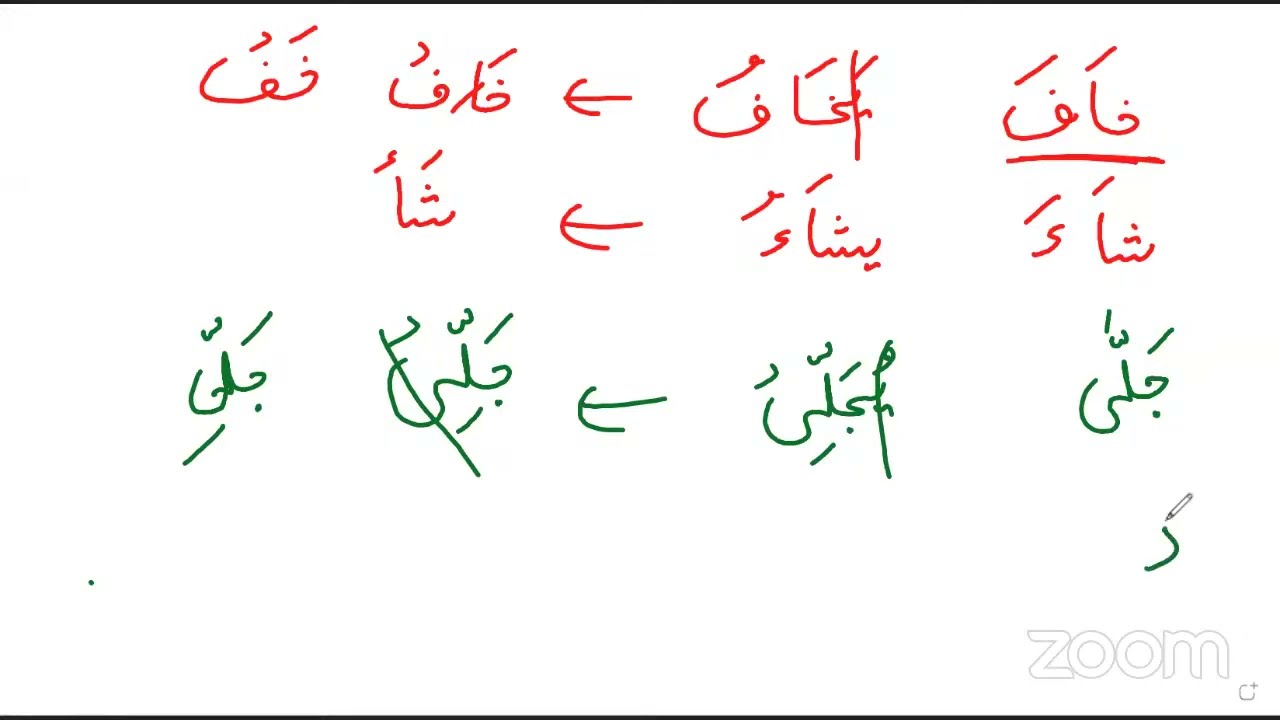 خَافَ يَخَافُ ← خَافُ خَفُ
شَاءَ يشَاءُ ← شَأْ
جَلَّى يُجَلِّىُ ← جَلِّىُ جَلِّى
د
zoom